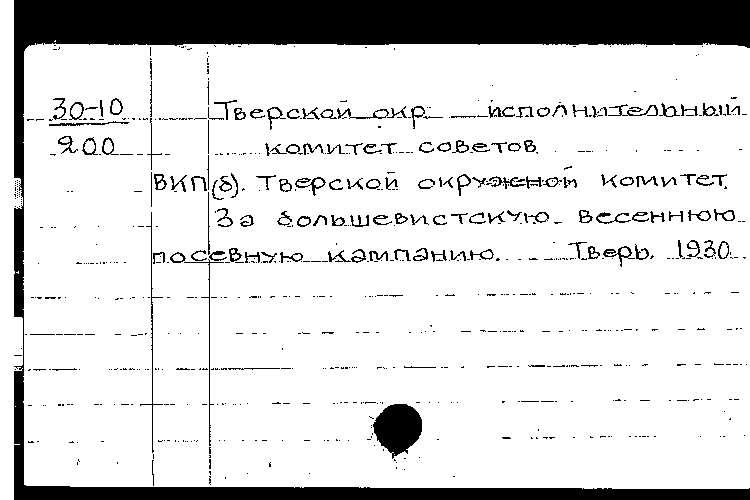 30-10 Тверской окр. исполнительный
200 комитет советов
ВКП(б). Тверской окружной комитет.
За большевистскую весеннюю
посевную кампанию. Тверь, 1930